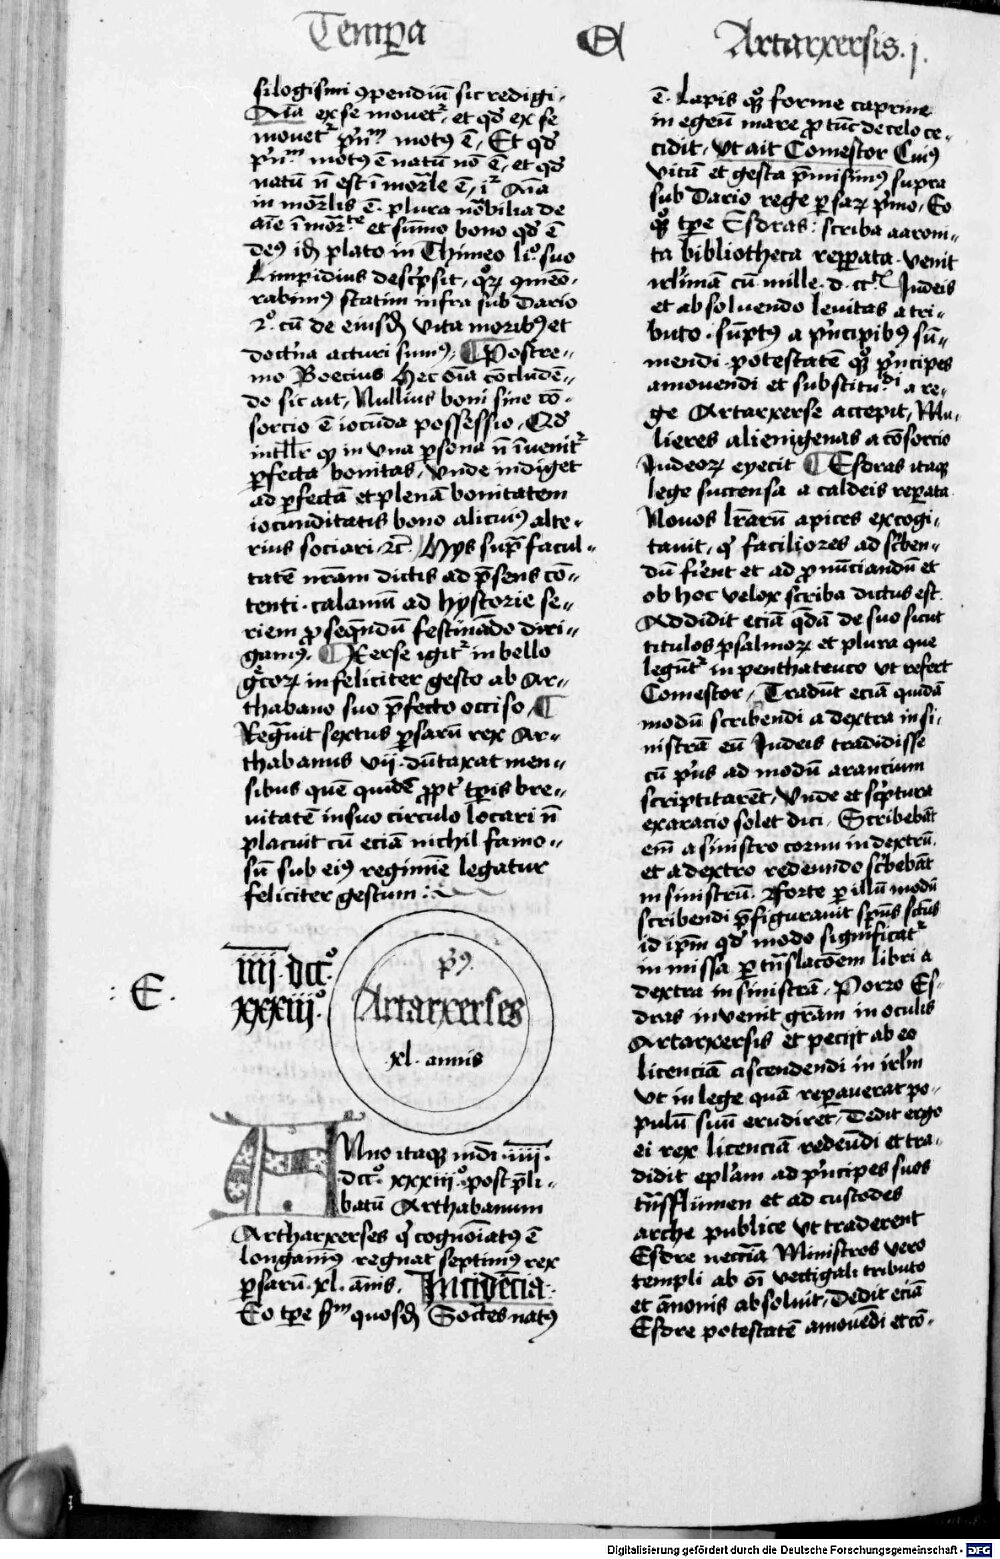 Tempora
A
Artarxersis j.
silogismi ꝯpendiū sic redigi-
Aīa ex se mouetr, et qđ ex se
mouetr pⁿm motꝰ ē, Et qđ
pⁿm motꝰ ē natū nō ē, et qđ
natū n̄ est īmorl̄e ē, iᵍ Aīa
in morl̄is ē. plura notabilia de
aīe īmorte et sūmo bono qđ ē
deꝰ idē plato in Thimeo li.º suo
Limpidius descpsit, quoꝝ qmeō-
rabimꝰ statim infra sub dario
2.º cū de eiusđ vita moribꝰ et
doctⁱna acturi sumꝰ. ¶ Postre-
mo Boecius hec oīa cōcludē-
do sic ait, Nullius boni sine cō-
sorcio ē iocūda possessio, Qđ
intll̄r qꝫ in vna psona n̄ īuenitr
pfecta bonitas, vnde indiget
ad pfectā et plenā bonitatem
iocunditatis bono alicuiꝰ alte-
rius sociari ⁊c̄. Hijs supᵃ facul-
tatē nrām dictis ad pn̄sens cō-
tenti. calamū ad hystorie se-
riem ꝓseqn̄dū festinādo diri-
gamꝰ. ¶ Xerse igitr in bello
gͨcoꝝ infeliciter gesto ab Ar-
thabano suo p̄fecto occiso, ¶
Regᵃuit sextus psarū rex Ar-
thabanus vij dūtaxat men-
sibus quē quidē ꝓptʳ tpis bre-
uitatē in suo circulo locari n̄
placuit cū eciā nichil famo-
sū sub eiꝰ regimīe legatur
feliciter gestum :
: E .
iiij. dcc.º
xxxiij.º
pⁱꝰ.
Artarxerses
xl. annis
Anno itaqꝫ mūdi iiij.
dcc.º xxxiij.º post p̄li-
batū Arthabanum
Artharxerses qⁱ cognoīatꝰ ē
longanimꝰ regnat septimꝰ rex
psarū xl. ānis, Incidēcia.
Eo tpe sᵐ quosđ Soctes natꝰ
ē. Lapis qqꝫ forme caprine
in egeū mare ꝓ tūc de celo ce-
cidit, vt ait Comestor Cuiꝰ
vitā et gesta p̄misimꝰ supra
sub Dario rege psaꝝ pⁱmo, Eo
qqꝫ tpe Esdras: scriba aaroni-
ta bibliotheca repata venit
irl̄imā cū mille. d. cc. Judeis
et absoluendo leuitas a tri-
buto. sūptꝰ a pⁱncipibꝰ sū-
mendi potestatē qqꝫ pⁱncipes
amouendi et substituēdi a re-
ge Artarxerse accepit, Mu-
lieres alienigenas a cōsorcio
Judeoꝝ eyecit ¶ Esdras itaqꝫ
lege succensa a caldeis repata
Nouos lrārū apices excogi-
tauit, qⁱ faciliores ad scⁱben-
dū fierēt et ad ꝓnūciandū et
ob hoc velox scriba dictus est.
Addidit eciā qᵈā de suo sicut
titulos psalmoꝝ et plura que
legūtr in penthateuco vt refert
Comestor, Tradūt eciā quidā
modū scribendi a dextra in si-
nistrā eū Judeis tradidisse
cū pⁱus ad modū arantium
scriptitarēt, Vnde et scⁱptura
exaracio solet dici, Scribebāt
em̄ a sinistro cornu in dextrū
et a dextro redeundo scⁱbebāt
in sinistrū. Forte p illū modū
scribendi p̄figurauit spūs sctūs
id ipm̄ qđ modo significatr
in missa p trⁿslacōem libri a
dextra in sinistrā. Porro Es-
dras inuenit grām in oculis
Artarxersis et peciit ab eo
licenciā ascendendi in irl̄m
vt in lege quā repauerat po-
pulū suū erudiret, Dedit ergo
ei rex licenciā redeūdi et tra-
didit epl̄am ad pⁱncipes suos
trⁿsflumen et ad custodes
arche publice vt traderent
Esdre neccīa Ministros vero
templi ab oī vectigali tributo
et ānonis absoluit, Dedit eciā
Esdre potestatē amouēdi et cō-
Digitalisierung gefördert durch die Deutsche Forschungsgemeinschaft - DFG